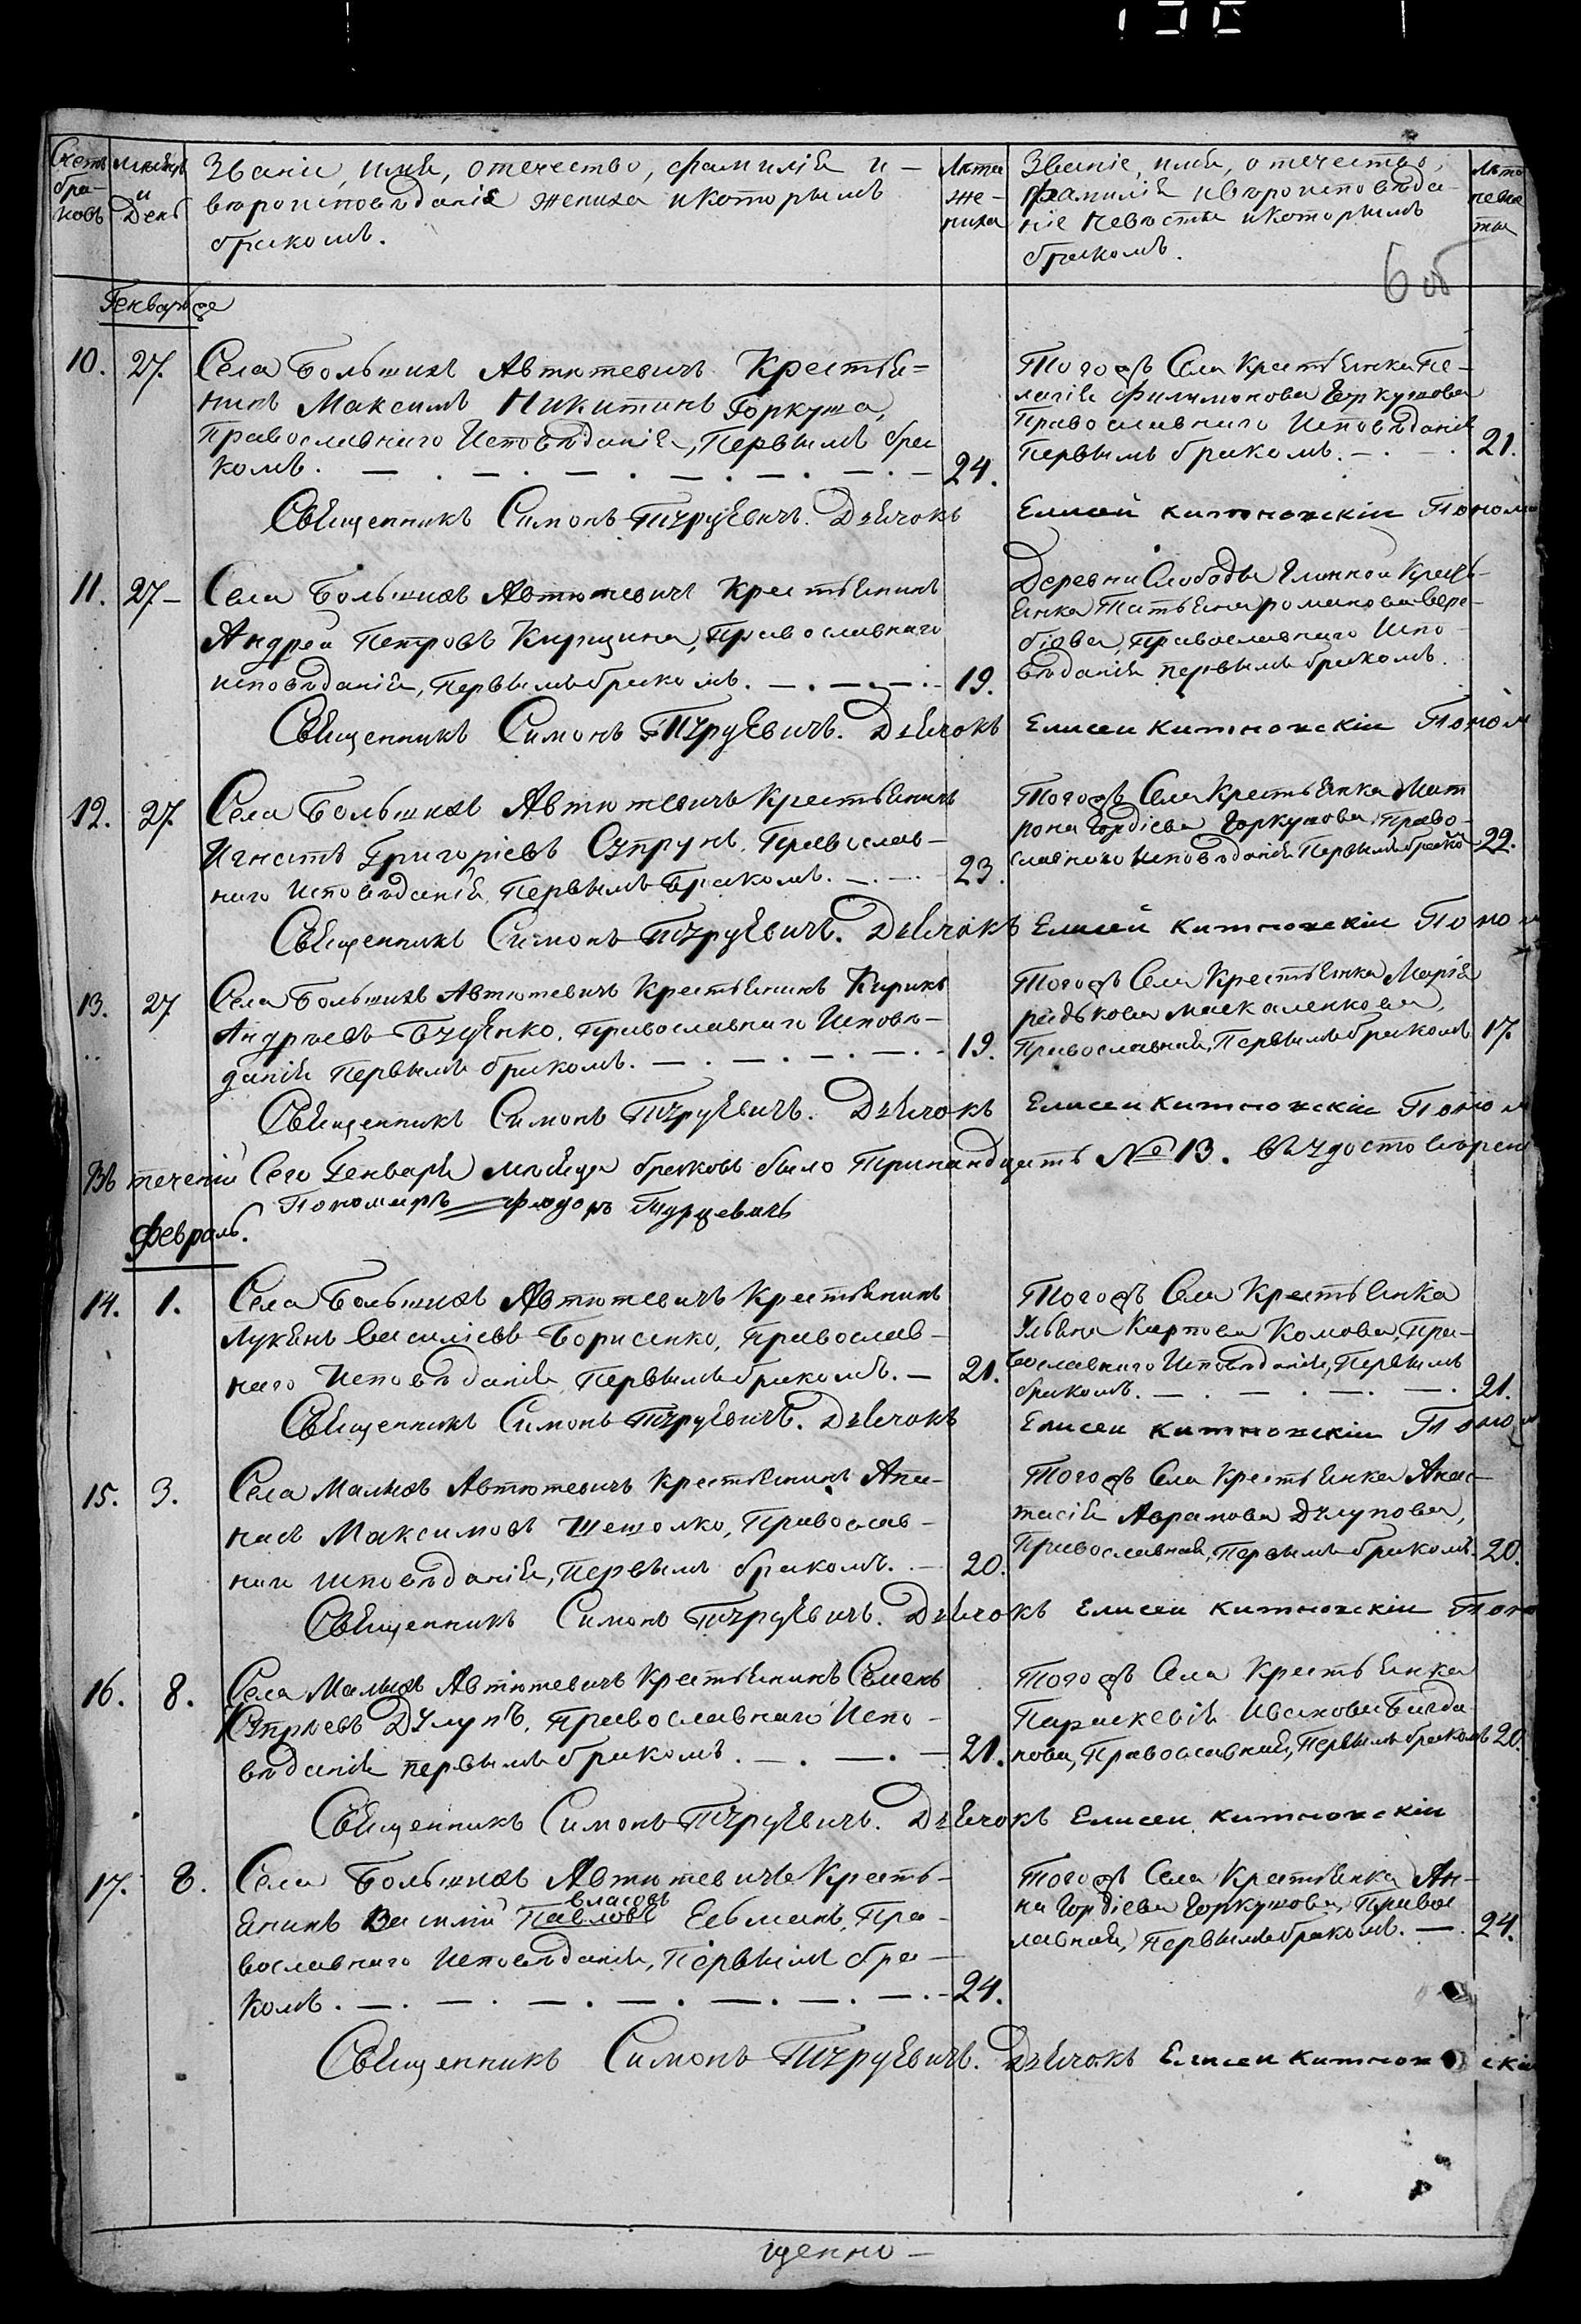 Счетъ браковъ
Мѣсяцъ и День
Званіе, имя, отечество, фамилія и
вѣроисповѣданіе жениха и которымъ
бракомъ.
Лѣта жениха
Званіе, имя, отечество,
фамилія и вѣроисповѣда-
ніе невѣсты и которымъ
бракомъ.
Лѣта невѣсты
6 об
Генварь
10. 27. Села Большихъ Автютевичъ Крестья=
нинъ Максимъ Никитинъ Горкуша,
Православнаго Исповѣданія, Первымъ бра
комъ. 24.
Тогожъ Села Крестьянка Пе-
лагія Филимонова Горкушова
Православнаго Исповѣданія
Первымъ бракомъ. 21.
Священникъ Симонъ Турцевичъ. Дьячокъ Елисей Китновскій Поном
11. 27 Села Большихъ Автютевичъ Крестьянинъ
Андрей Петровъ Кирщина, Православнаго
исповѣданія, Первымъ бракомъ. 19.
Деревни Слободы Глинной Кресть-
янка Татьяна романова Вере-
біова, Православнаго Испо-
вѣданія первымъ бракомъ.
Священникъ Симонъ Турцевичъ. Дьячокъ Елисеи Китновскіи Поном
12. 27 Села Большихъ Автютевичъ Крестьянинъ
Игнатъ Григоріевъ Супрунъ, Православ-
наго Исповѣданія, Первымъ Бракомъ. 23.
Тогожъ Села Крестьянка Мат
рона Гордіева Горкушова, Право-
славнаго Исповѣданія Первымъ брако 22.
Священникъ Симонъ Турцевичъ. Дьячокъ Елисей Китновскіи Поном
13. 27 Села Большихъ Автютевичъ Крестьянинъ Кирикъ
Андрѣевъ Буценко, Православнаго Исповѣ-
данія Первымъ бракомъ. 19.
Тогожъ Села Крестьянка Марія
радькова Маскаленкова,
Православная, Первымъ бракомъ 17.
Священникъ Симонъ Турцевичъ. Дьячокъ Елисеи Китновскіи Поном
Въ теченіи Сего Генваря мѣсяца браковъ было Тринандцать № 13. въ удостовѣрені
Пономаръ Фіодоръ Турцевичъ
Февраль.
14. 1. Села Большихъ Автютевичъ Крестьянинъ
Лукьянъ Василіевъ Борисенко, Православ-
наго Исповѣданія, Первымъ бракомъ. 21.
Тогожъ Села Крестьянка
Ульяна Карпова Комова, Пра-
вославнаго Исповѣданія, Первымъ
бракомъ. 21.
Священникъ Симонъ Турцевичъ. Дьячокъ Елисеи Китновскіи Поном
15. 3. Села Малыхъ Автютевичъ Крестьянинъ Апа-
насъ Максимовъ Шешолко, Православ-
наго исповѣданія, Первымъ бракомъ. 20.
Тогожъ Села Крестьянка Анас-
тасія Аврамова Дулупова,
Православная, Первымъ бракомъ. 20.
Священникъ Симонъ Турцевичъ. Дьячокъ Елисеи Китновскіи Поно
16. 8. Села Малыхъ Автютевичъ Крестьянинъ Семенъ
Дулупъ, Православнаго Испо-
вѣданія первымъ бракомъ. 21.
Тогожъ Села Крестьянка
Параскевія Иванова Богда
нова, Православная, Первымъ бракомъ 20.
Священникъ Симонъ Турцевичъ. Дьячокъ Елисеи Китновскіи
17. 8. Села Большихъ Автютевичъ Кресть-
власовъ
янинъ Василій Павловъ Ееьманъ, Пра-
вославнаго Исповѣданія, Первымъ бра-
комъ. 24.
Тогожъ Села Крестьянка Ан-
на Гордіева Горкушова, Правос
лавная, Первымъ бракомъ. 24.
Священникъ Симонъ Турцевичъ. Дьячокъ Елисеи Китновскіи
щенно